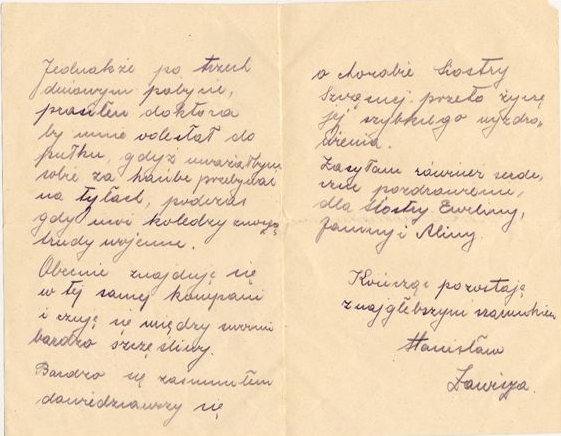 Jednakże po trzech
dniowym pobycie,
prosiłem doktora
by mnie odesłał do
pułku, gdyż uważałbym
sobie za hańbę przebywać
na tyłach, podczas
gdy moi koledzy znoszą
trudy wojenne.
Obecnie znajduję się
w tej samej kompani
i czuję się między swemi
bardzo szczęśliwy.
Bardzo się zasmuciłem
dowiedziawszy się
o chorobie Siostry
przeto życzę
jej szybkiego wyzdro-
wienia.
Zasyłam również serde-
czne pozdrowienia,
dla siostry Eweliny,
Janiny i Aliny.
Kończąc pozostaję
z najgłębszym szacunkiem
Stanisław
Zawisza.